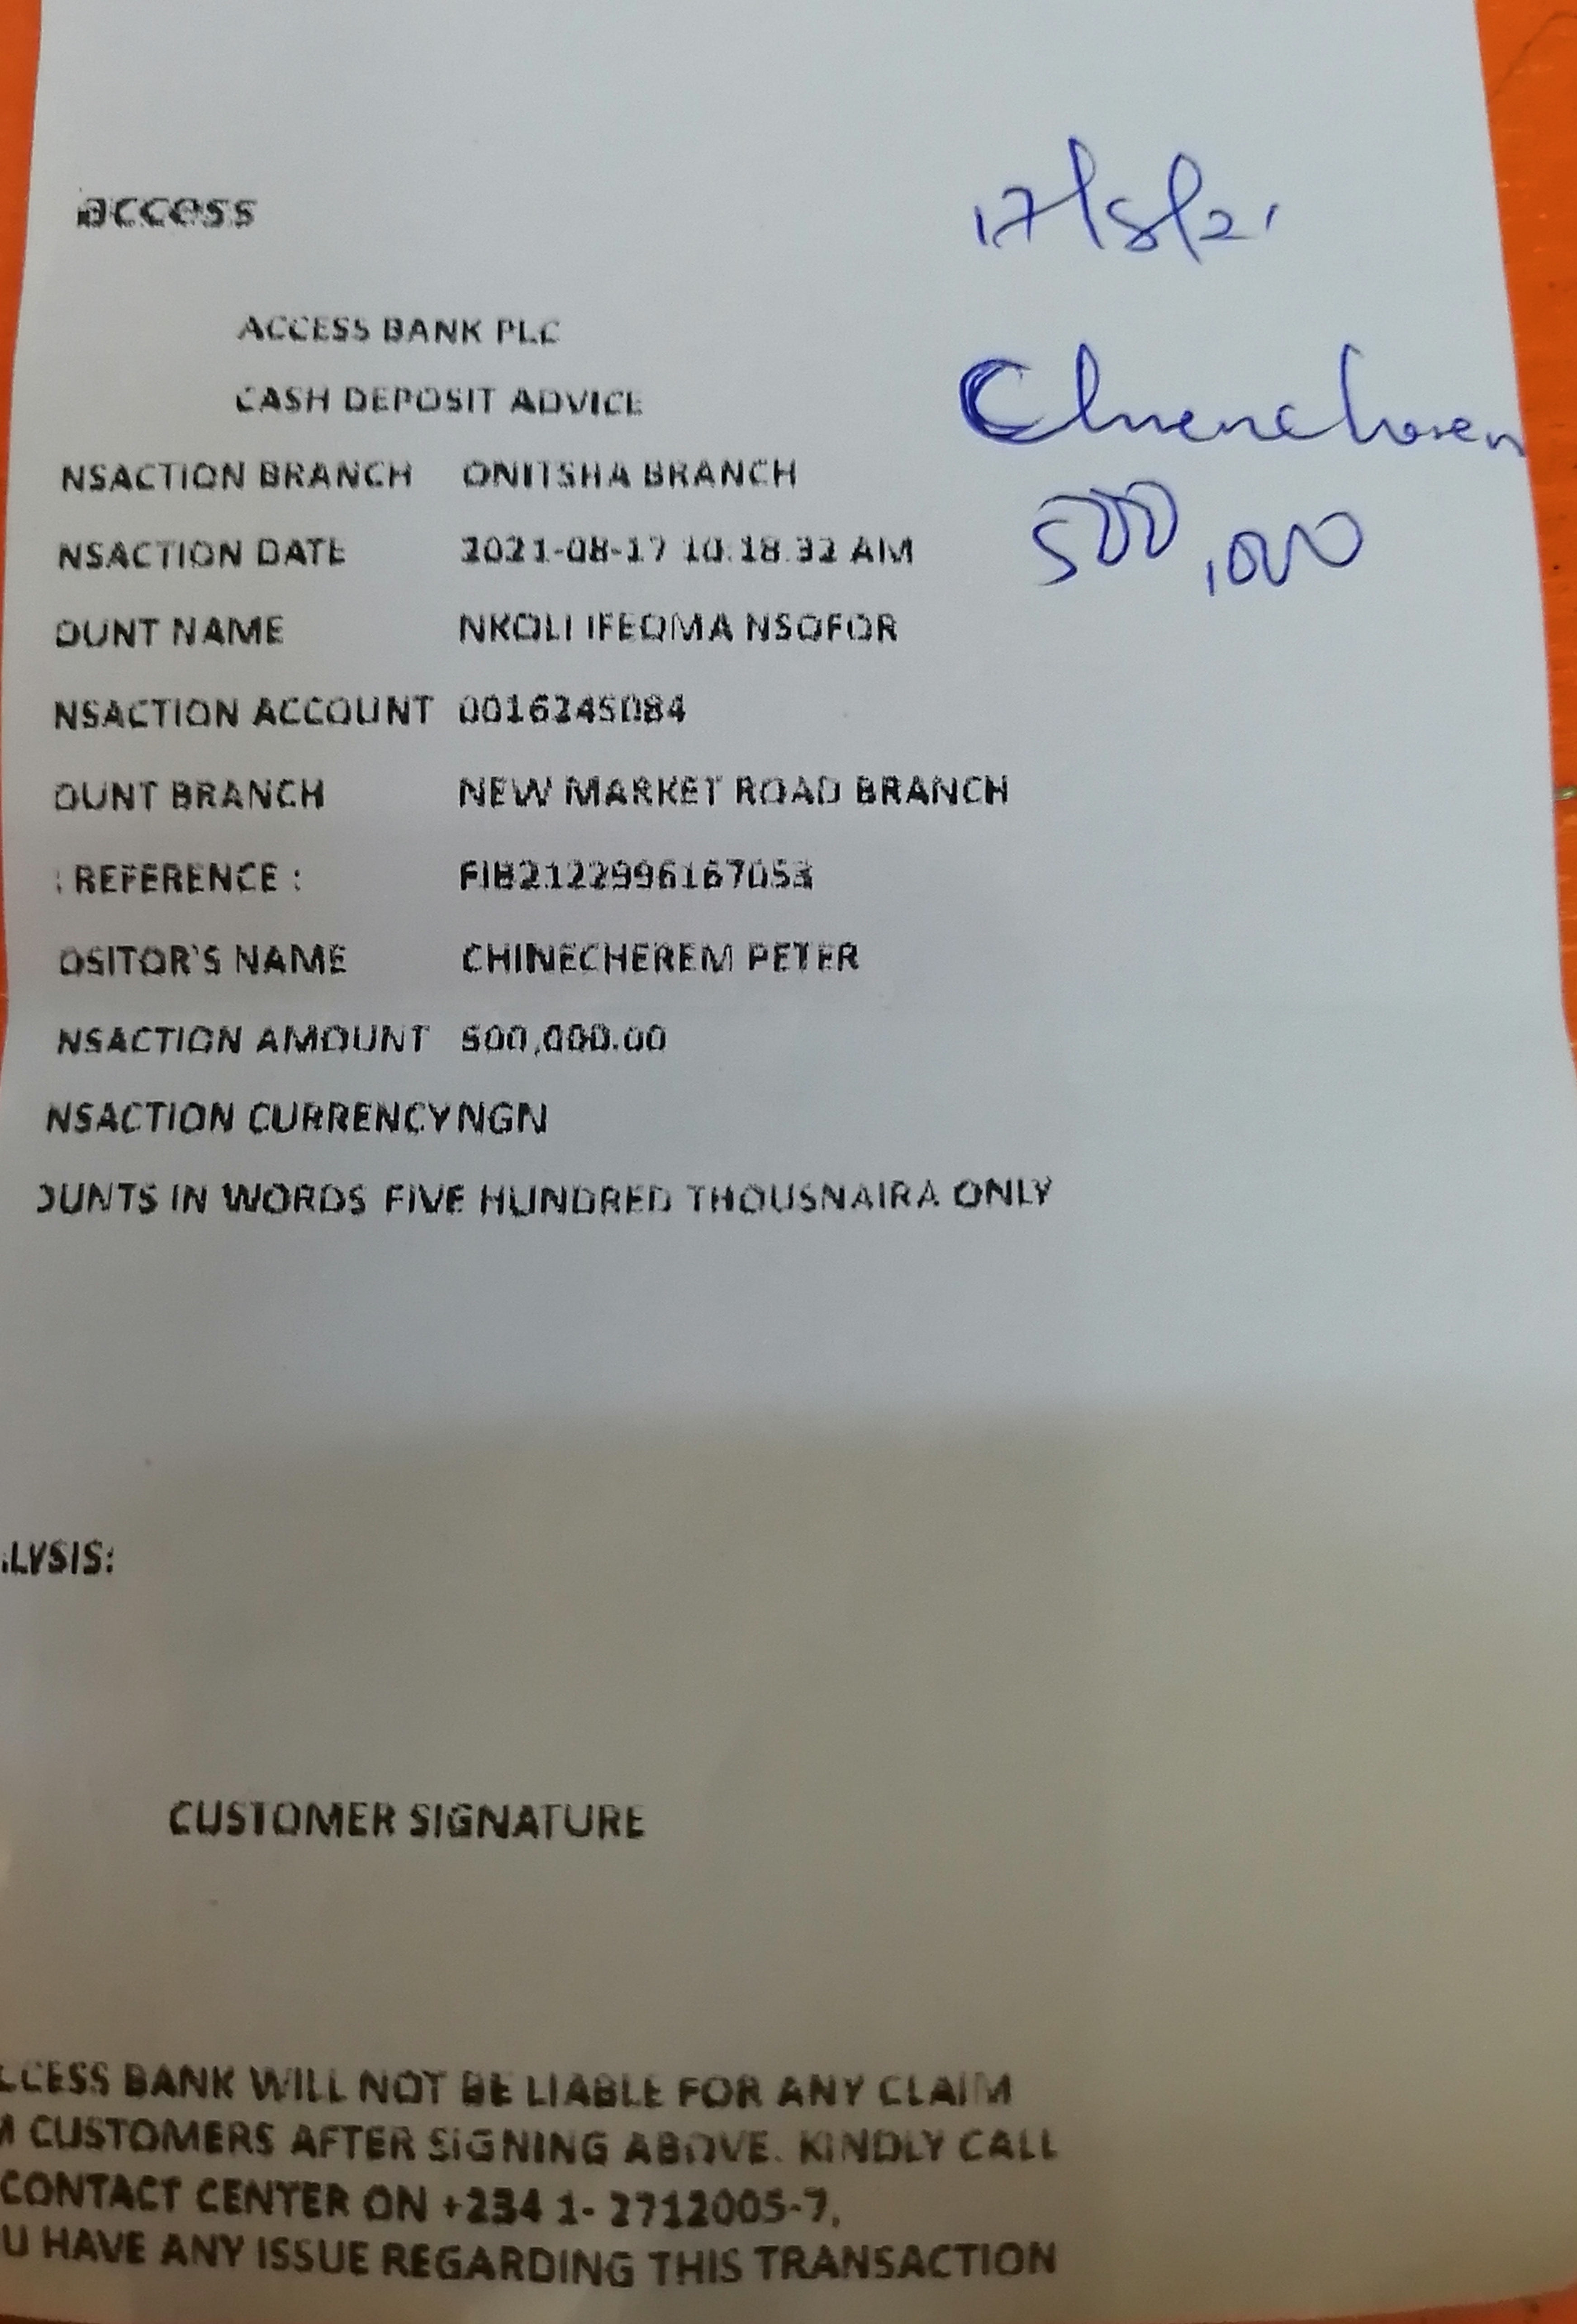 access
17/8/21
ACCESS BANK PLC
CASH DEPOSIT ADVICE
NSACTION BRANCH ONITSHA BRANCH
500,000
NSACTION DATE 2021-08-17 10:18:32 AM
OUNT NAME NKOLI IFEOMA NSOFOR
NSACTION ACCOUNT 0016245084
OUNT BRANCH NEW MARKET ROAD BRANCH
: REFERENCE : FIB2122996167053
OSITOR'S NAME CHINECHEREM PETER
NSACTION AMOUNT 500,000.00
NSACTION CURRENCY NGN
OUNTS IN WORDS FIVE HUNDRED THOUSNAIRA ONLY
ALYSIS:
CUSTOMER SIGNATURE
CCESS BANK WILL NOT BE LIABLE FOR ANY CLAIM
M CUSTOMERS AFTER SIGNING ABOVE. KINDLY CALL
CONTACT CENTER ON +234 1- 2712005-7,
U HAVE ANY ISSUE REGARDING THIS TRANSACTION